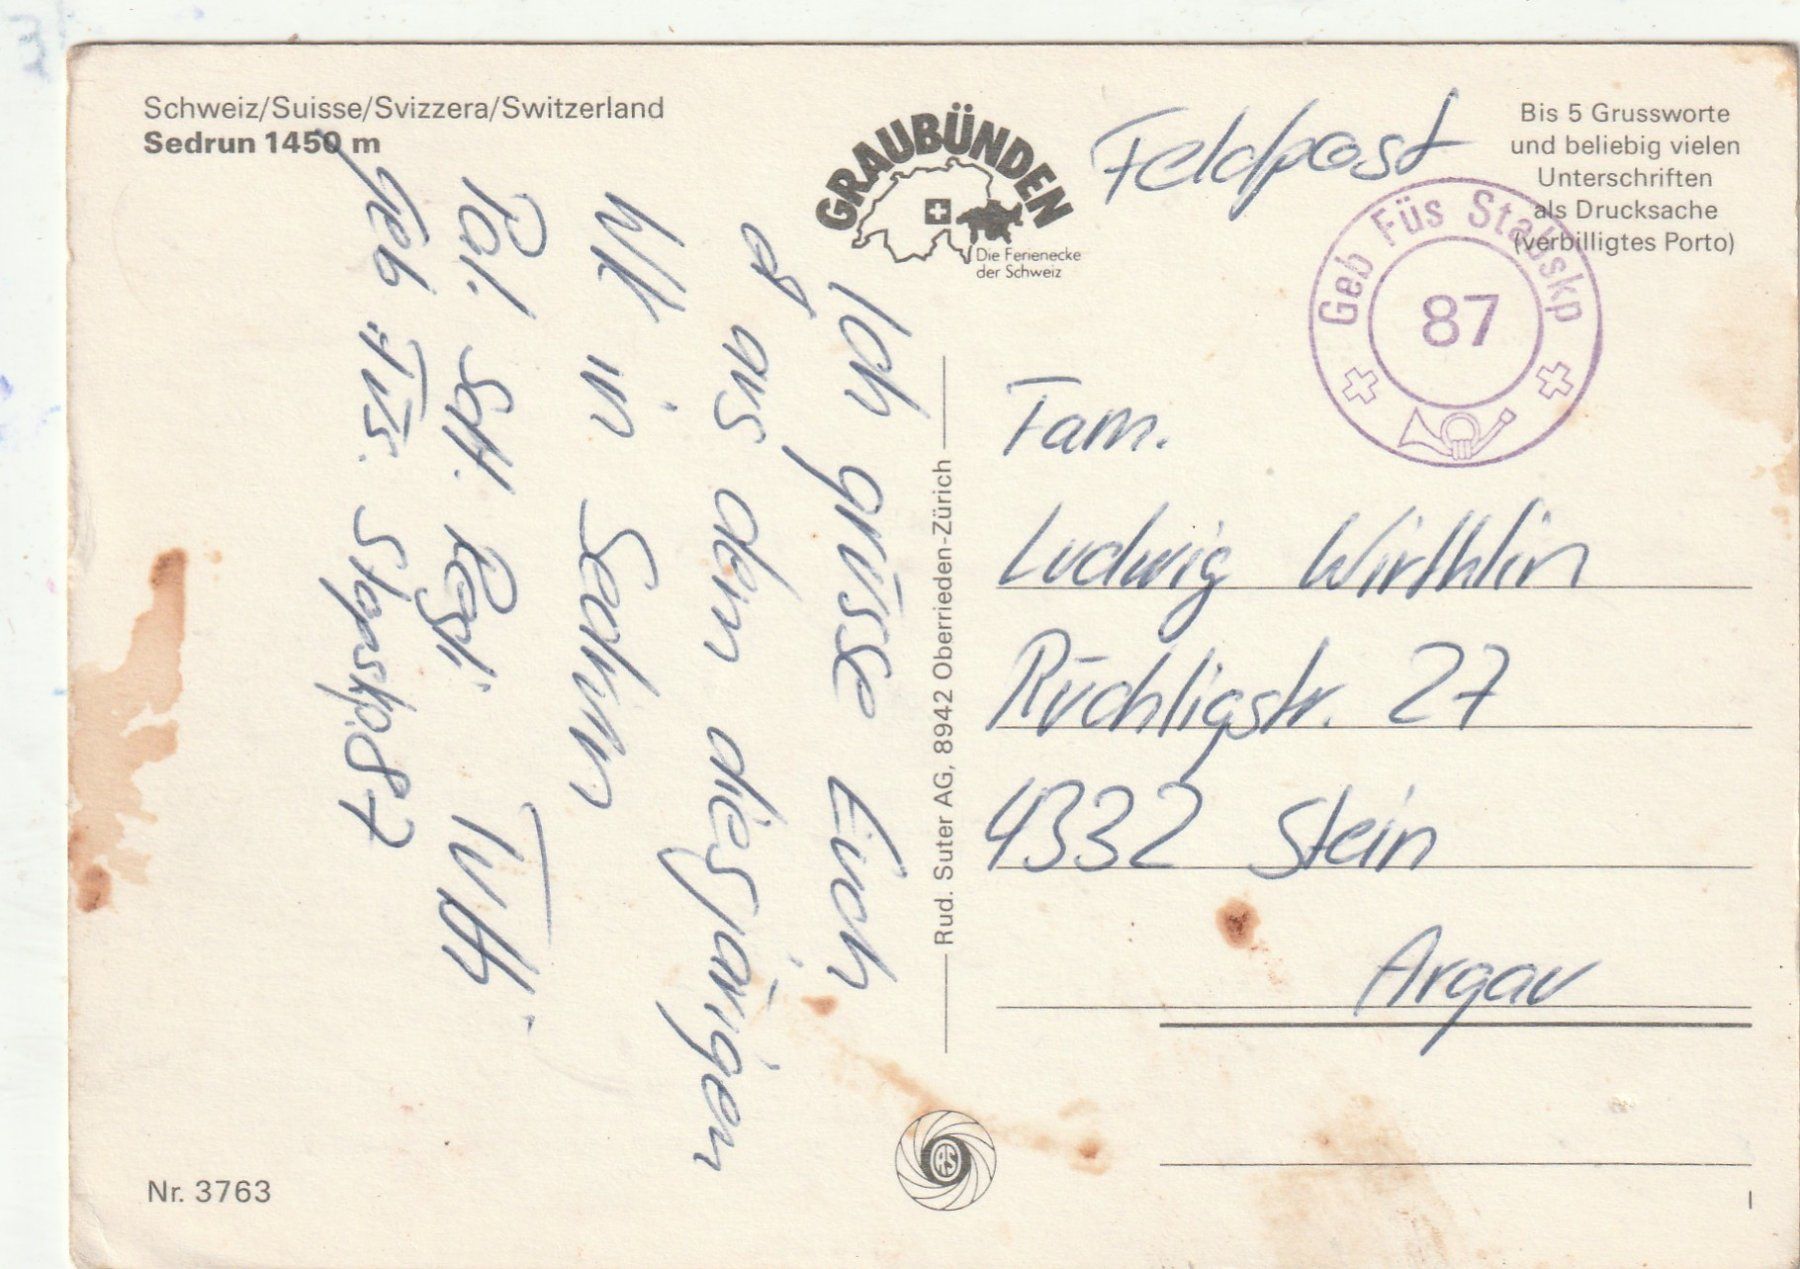 Schweiz/Suisse/Svizzera/Switzerland
Sedrun 1450 m
GRAUBÜNDEN
Die Ferienecke
der Schweiz
Feldpost
Bis 5 Grussworte
und beliebig vielen
Unterschriften
als Drucksache
(verbilligtes Porto)
Geb Füs Stabskp
87
Ich grüsse Euch
aus dem diesjärigen
WK in Sedrun
Pal. Sdt. Regli
Geb. Füs. Stapskp. 87
Rud. Suter AG, 8942 Oberrieden-Zürich
Fam.
Ludwig Wirthlin
Rüchligstr. 27
4332 Stein
Argau
RS
Nr. 3763
I